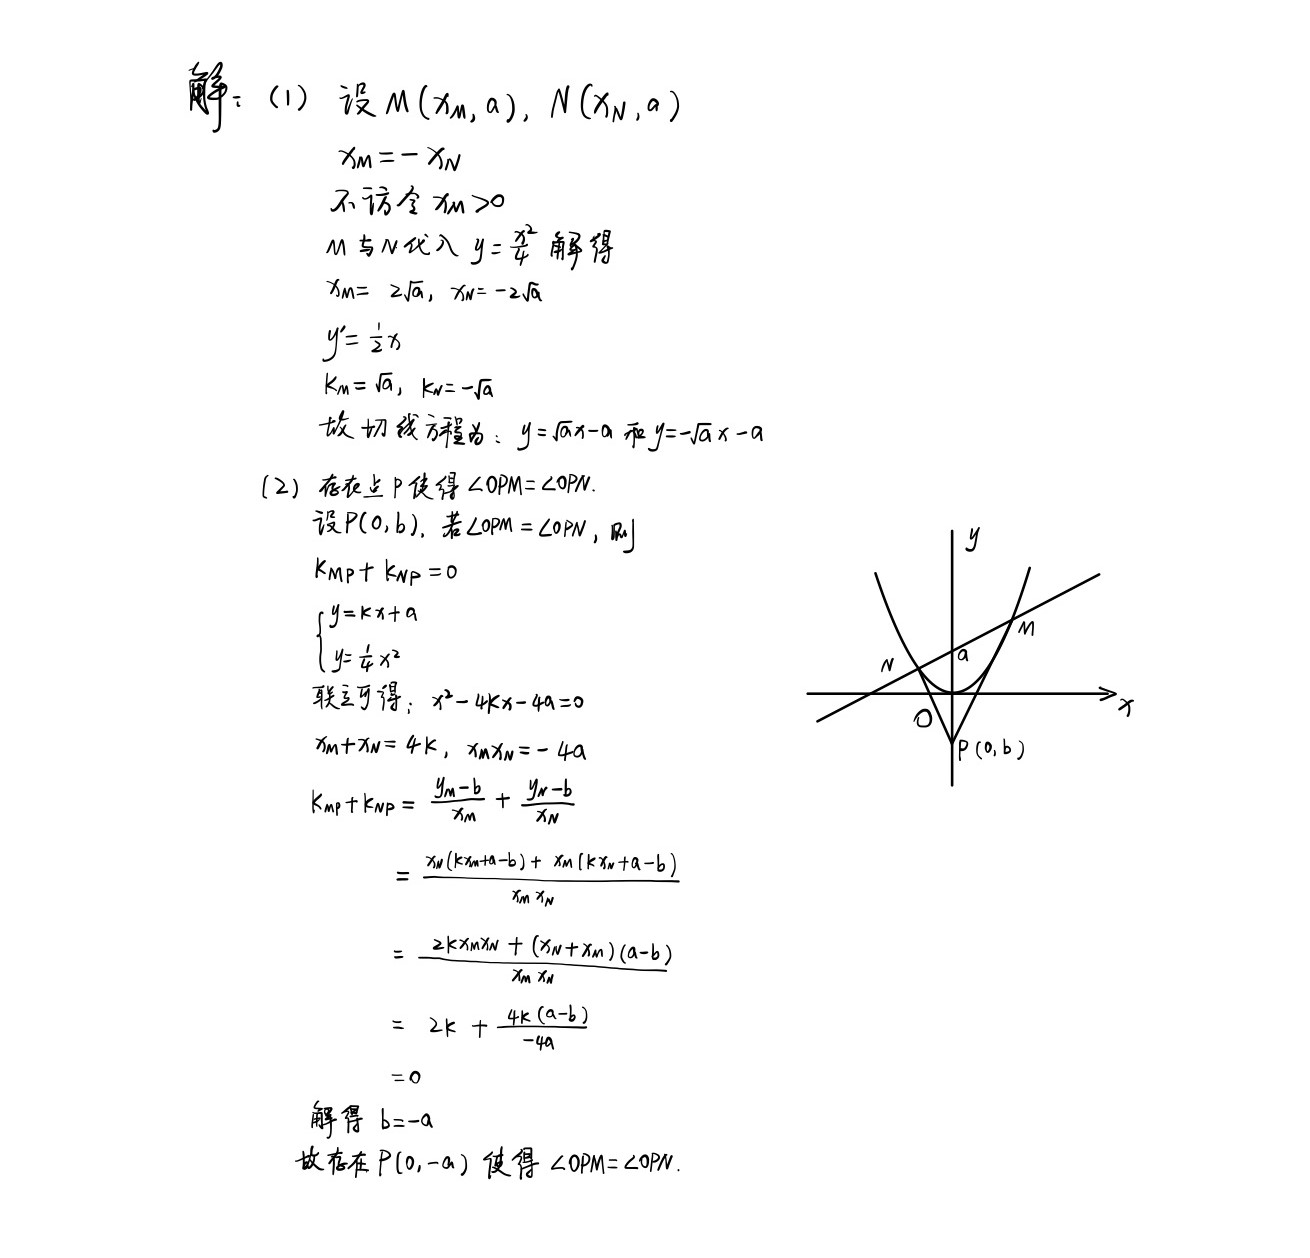 解：(1) 设 M(x_M, a), N(x_N, a)
x_M = -x_N
不访令 x_M > 0
M与N代入 y = x²/4 解得
x_M = 2√a, x_N = -2√a
y' = 1/2 x
k_M = √a, k_N = -√a
故切线方程为：y = √a x - a 和 y = -√a x - a
(2) 存在点P使得∠OPM = ∠OPN.
设P(0, b), 若∠OPM = ∠OPN, 则
k_MP + k_NP = 0
{ y = kx + a
y = 1/4 x²
联立可得：x² - 4kx - 4a = 0
x_M + x_N = 4k, x_M x_N = -4a
k_MP + k_NP = (y_M - b)/x_M + (y_N - b)/x_N
= (x_N(kx_M + a - b) + x_M(kx_N + a - b))/(x_M x_N)
= (2k x_M x_N + (x_N + x_M)(a - b))/(x_M x_N)
= 2k + 4k(a - b)/(-4a)
= 0
解得 b = -a
故存在P(0, -a) 使得∠OPM = ∠OPN.
y
M
a
N
x
O
P(0, b)